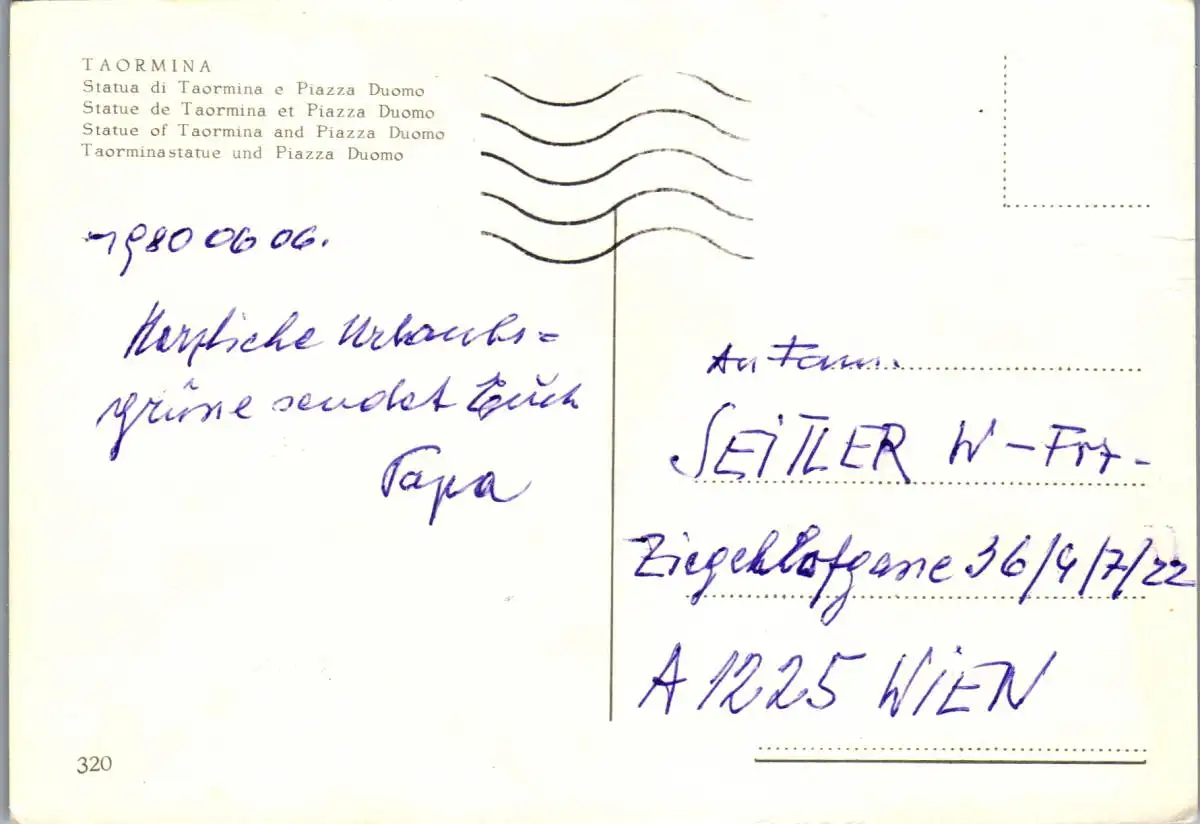 TAORMINA
Statua di Taormina e Piazza Duomo
Statue de Taormina et Piazza Duomo
Statue of Taormina and Piazza Duomo
Taorminastatue und Piazza Duomo
1980 06 06.
Herzliche Urlaubs=
grüsse sendet Euch
Papa
An Fam.
SEITLER W –
Ziegelhofgasse 36/4/7/22
A 1225 WIEN
320